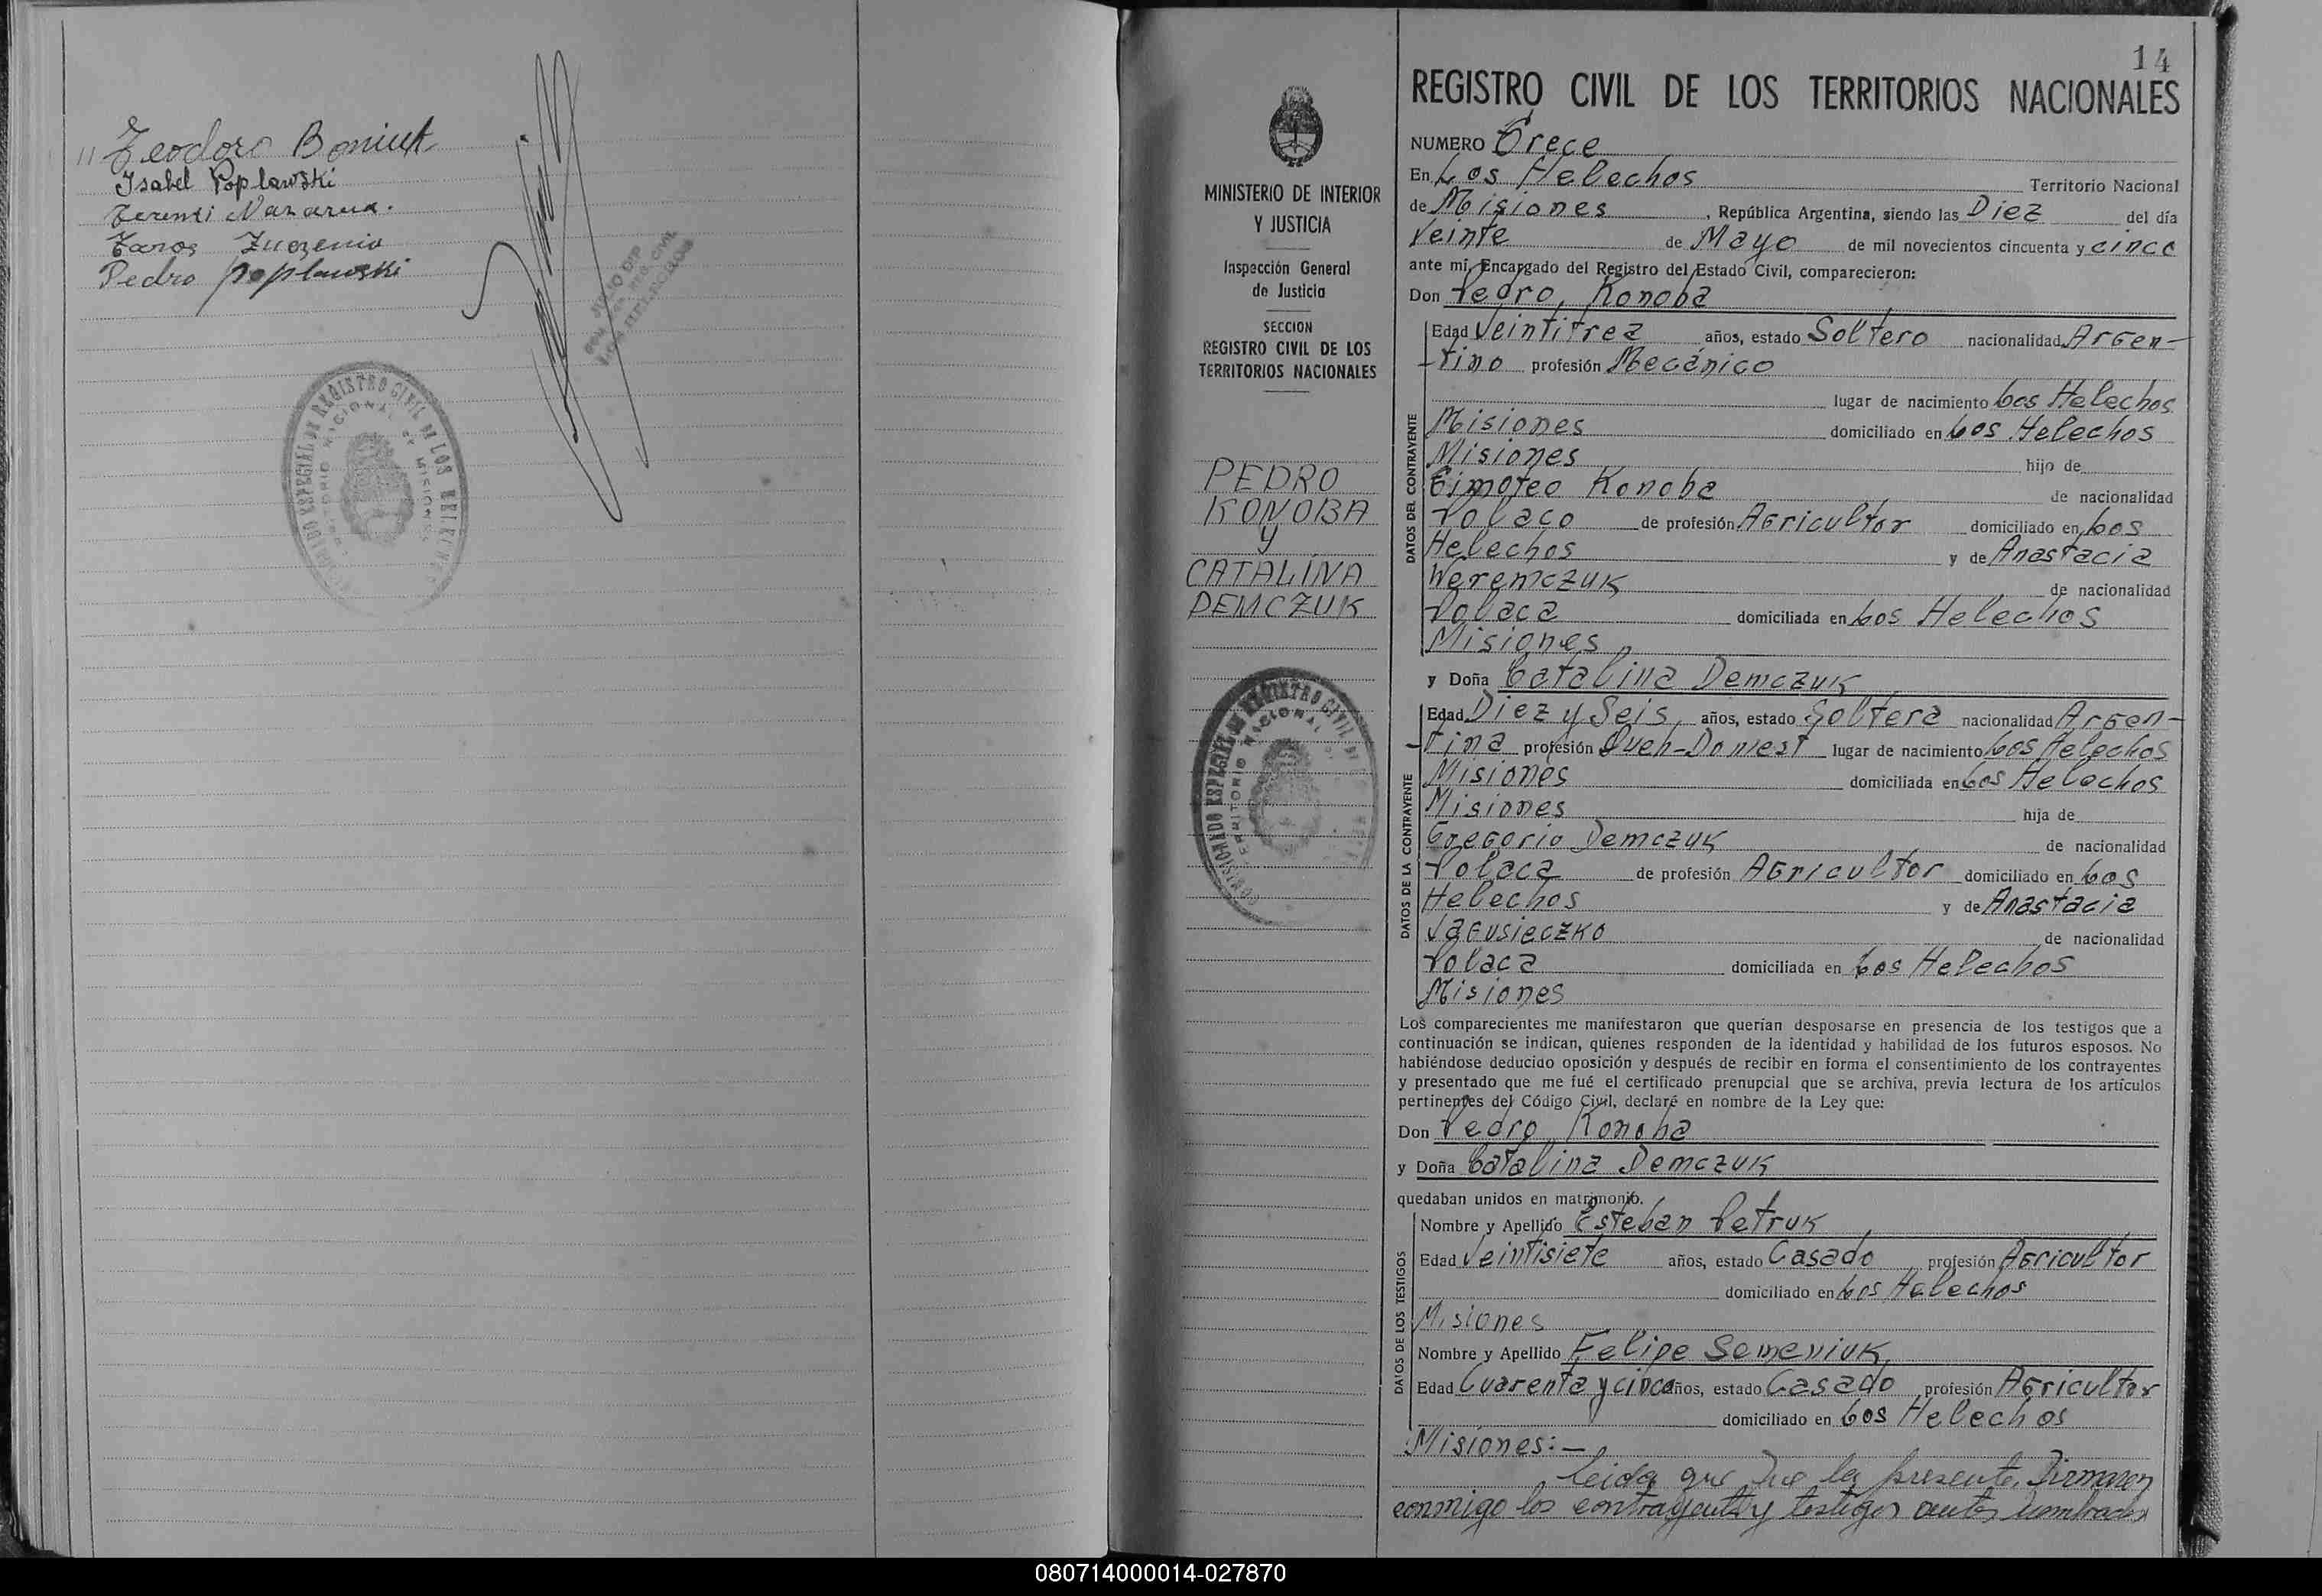 Teodoro Boniuk
Isabel Poplawski
Terenti Nazaruk.
Taros Zuczenio
Pedro Poplawski
COMISIONADO ESPECIAL DE REGISTRO CIVIL DE LOS HELECHOS
TERRITORIO NACIONAL DE MISIONES
14
MINISTERIO DE INTERIOR
Y JUSTICIA
Inspección General
de Justicia
SECCION
REGISTRO CIVIL DE LOS
TERRITORIOS NACIONALES
PEDRO
KONOBA
Y
CATALINA
DEMCZUK
COMISIONADO ESPECIAL DE REGISTRO CIVIL DE
TERRITORIO NACIONAL
REGISTRO CIVIL DE LOS TERRITORIOS NACIONALES
NUMERO Trece
En Los Helechos Territorio Nacional
de Misiones, República Argentina, siendo las Diez del día
Veinte de Mayo de mil novecientos cincuenta y cinco
ante mí, Encargado del Registro del Estado Civil, comparecieron:
Don Pedro, Konoba
DATOS DEL CONTRAYENTE
Edad Veintitrez años, estado Soltero nacionalidad Argen-
-tino profesión Mecánico
lugar de nacimiento Los Helechos
Misiones domiciliado en Los Helechos
Misiones hijo de
Timoteo Konoba de nacionalidad
Polaco de profesión Agricultor domiciliado en Los
Helechos y de Anastacia
Weremczuk de nacionalidad
Polaca domiciliada en Los Helechos
Misiones
y Doña Catalina Demczuk
DATOS DE LA CONTRAYENTE
Edad Diez y Seis, años, estado Soltera nacionalidad Argen-
-tina profesión Queh-Domest lugar de nacimiento Los Helechos
Misiones domiciliada en Los Helechos
Misiones hija de
Gregorio Demczuk de nacionalidad
Polaca de profesión Agricultor domiciliado en Los
Helechos y de Anastacia
Jagusieczko de nacionalidad
Polaca domiciliada en Los Helechos
Misiones
Los comparecientes me manifestaron que querían desposarse en presencia de los testigos que a
continuación se indican, quienes responden de la identidad y habilidad de los futuros esposos. No
habiéndose deducido oposición y después de recibir en forma el consentimiento de los contrayentes
y presentado que me fué el certificado prenupcial que se archiva, previa lectura de los artículos
pertinentes del Código Civil, declaré en nombre de la Ley que:
Don Pedro Konoba
y Doña Catalina Demczuk
quedaban unidos en matrimonio.
DATOS DE LOS TESTIGOS
Nombre y Apellido Esteban Petruk
Edad Veintisiete años, estado Casado profesión Agricultor
domiciliado en Los Helechos
Misiones
Nombre y Apellido Felipe Semeniuk
Edad Cuarenta y cinco años, estado Casado profesión Agricultor
domiciliado en Los Helechos
Misiones:-
Leida que fue la presente, firmaron
conmigo los contrayentes y testigos antes nombrados
080714000014-027870